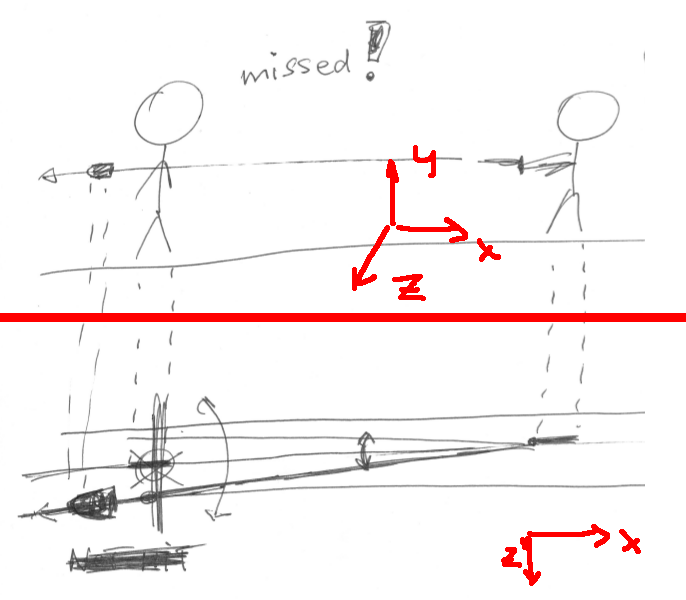 missed!
y
x
z
x
z